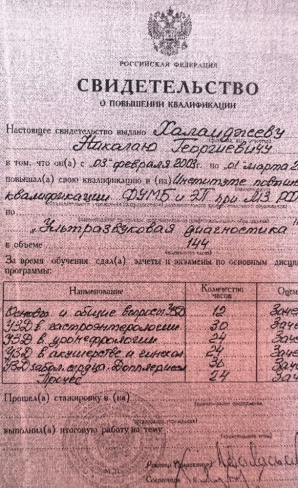 РОССИЙСКАЯ ФЕДЕРАЦИЯ
СВИДЕТЕЛЬСТВО
О ПОВЫШЕНИИ КВАЛИФИКАЦИИ
Настоящее свидетельство выдано
Николаю Георгиевичу
в том, что он(а) с 03 февраля 2003г. по 01 марта 2
повышал(а) свою квалификацию в (на) Институте повыш
квалификации ФУМБ и ЭП при МЗ РФ
по
"Ультразвуковая диагностика
в объеме 144
За время обучения сдал(а) зачеты и экзамены по основным дисцип
программы:
Наименование Количество часов Оцен
Основы и общие вопросы УЗД 12 Заче
УЗД в гастроэнтерологии 30 Заче
УЗД в уронефрологии 24 Заче
УЗД в акушерстве и гинекол. 24 Заче
УЗД забол. сердца. Допплерогр 36 Заче
Прочее 24 Заче
Прошел(а) стажировку в (на)
выполнил(а) итоговую работу на тему
М.П.
Секретарь